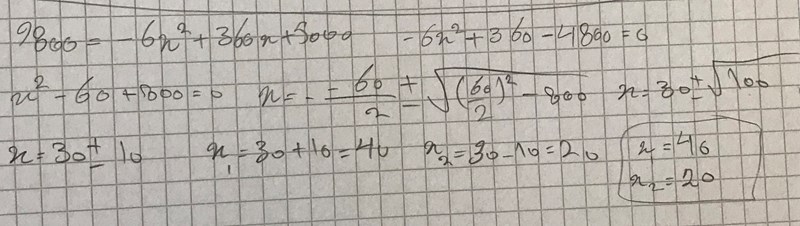 9800 = -6x² + 360x + 5000 -6x² + 360 - 4800 = 0
x² - 60 + 800 = 0 x = - -60/2 ± √((60/2)² - 800) x = 30 ± √100
x = 30 ± 10 x₁ = 30 + 10 = 40 x₂ = 30 - 10 = 20 x = 40
x₂ = 20